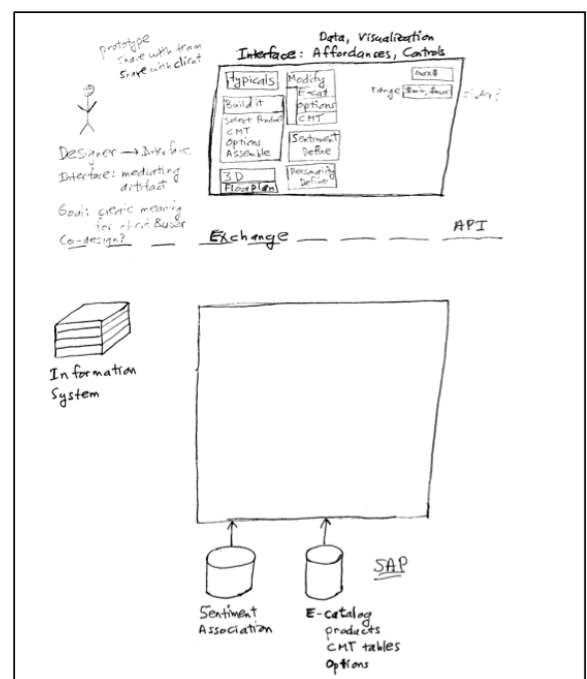 prototype
share with team
share with client
Data, Visualization
Interface: Affordances, Controls
Typicals
Build it
Select Product
CMT
Options
Assemble
3D
Floorplan
Modify
E-cat
options
CMT
Sentiment
Define
Personality
Define
max$
range $min, $max
slider?
Designer → Interface
Interface: mediating
artifact
Goal: create meaning
for client & user
Co-design?
Exchange
API
Information
System
Sentiment
Association
SAP
E-catalog
products
CMT tables
Options